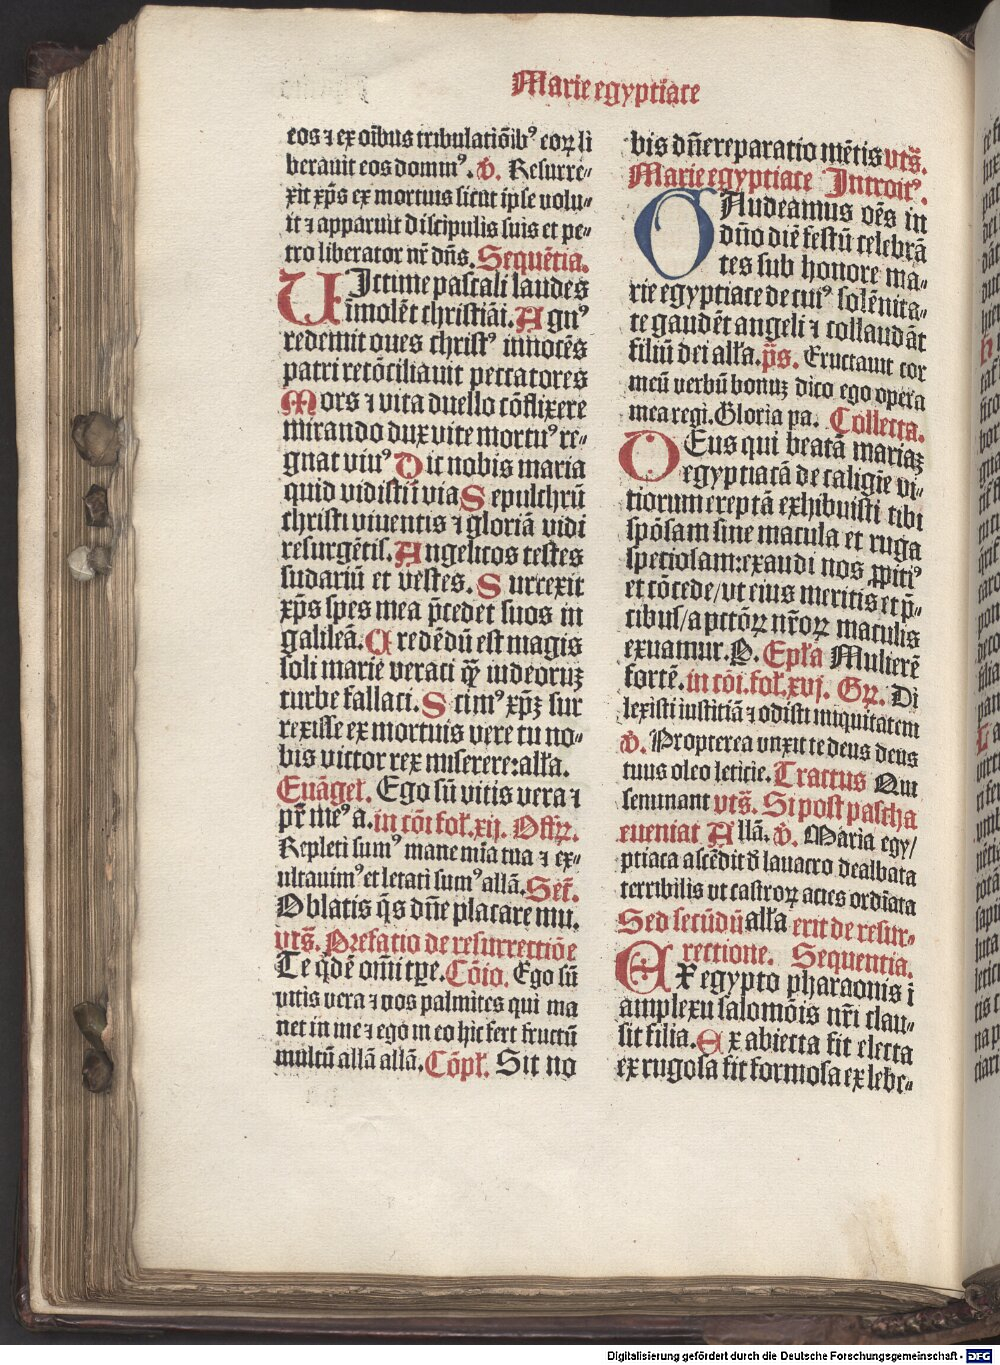 Marie egyptiace
eos ⁊ ex oĩbus tribulatiõib⁹ eoꝝ li
berauit eos domin⁹. ℣. Resurre-
xit xp̃s ex mortuis sicut ipse volu-
it ⁊ apparuit discipulis suis et pe-
tro liberator nr̃ dñs. Sequẽtia.
VIctime pascali laudes
ĩmolẽt christiãi. Agn⁹
redemit oues christ⁹ innocẽs
patri recõciliauit peccatores
Mors ⁊ vita duello cõflixere
mirando dux vite mortu⁹ re-
gnat viu⁹ Dic nobis maria
quid vidisti ĩ via Sepulchrũ
christi viuentis ⁊ gloriã vidi
resurgẽtis. Angelicos testes
sudariũ et vestes. Surrexit
xp̃s spes mea p̃cedet suos in
galileã. Credẽdũ est magis
soli marie veraci q̃ȝ iudeoruȝ
turbe fallaci. Scim⁹ xp̃ȝ sur
rexisse ex mortuis vere tu no-
bis victor rex miserere: alła.
Euãgeł. Ego sũ vitis vera ⁊
pr̃ me⁹ a. in cõi foł. xij. Offr̃.
Repleti sum⁹ mane mĩa tua ⁊ ex-
ultauim⁹ et letati sum⁹ allã. Sec̃.
Oblatis q̃s dñe placare mu.
vts̃. Prefatio de resurrectiõe
Te q̃dẽ om̃i tp̃e. Cõio. Ego sũ
vitis vera ⁊ vos palmites qui ma
net in me ⁊ ego in eo hic fert fructũ
multũ allã allã. Cõpł. Sit no
bis dñe reparatio mẽtis vts̃.
Marie egyptiace Introit⁹.
GAudeamus oẽs in
dño diẽ festũ celebrã
tes sub honore ma-
rie egyptiace de cui⁹ solẽnita-
te gaudẽt angeli ⁊ collaudãt
filiũ dei alła. p̃s. Eructauit cor
meũ verbũ bonuȝ dico ego opera
mea regi. Gloria pa. Collecta.
DEus qui beatã mariaȝ
egyptiacã de caligĩe vi-
tiorum ereptã exhibuisti tibi
spõsam sine macula et ruga
speciosam: exaudi nos ꝓpiti⁹
et cõcede/ vt eius meritis et p̃-
cibus/ a pctõꝝ nr̃oꝝ maculis
exuamur. P. Epła Mulierẽ
fortẽ. in cõi. foł. xvj. Gꝝ. Di
lexisti iusticiã ⁊ odisti iniquitatem
℣. Propterea vnxit te deus deus
tuus oleo leticie. Tractus Qui
seminant vts̃. Si post pascha
eueniat Allã. ℣. Maria egy/
ptiaca ascẽdit d̃ lauacro dealbata
terribilis vt castroꝝ acies ordĩata
Sed secũdũ alła erit de resur-
rectione. Sequentia.
EX egypto pharaonis ĩ
amplexu salomõis nr̃i clau-
sit filia. Ex abiecta fit electa
ex rugosa fit formosa ex lebe-
Digitalisierung gefördert durch die Deutsche Forschungsgemeinschaft - DFG